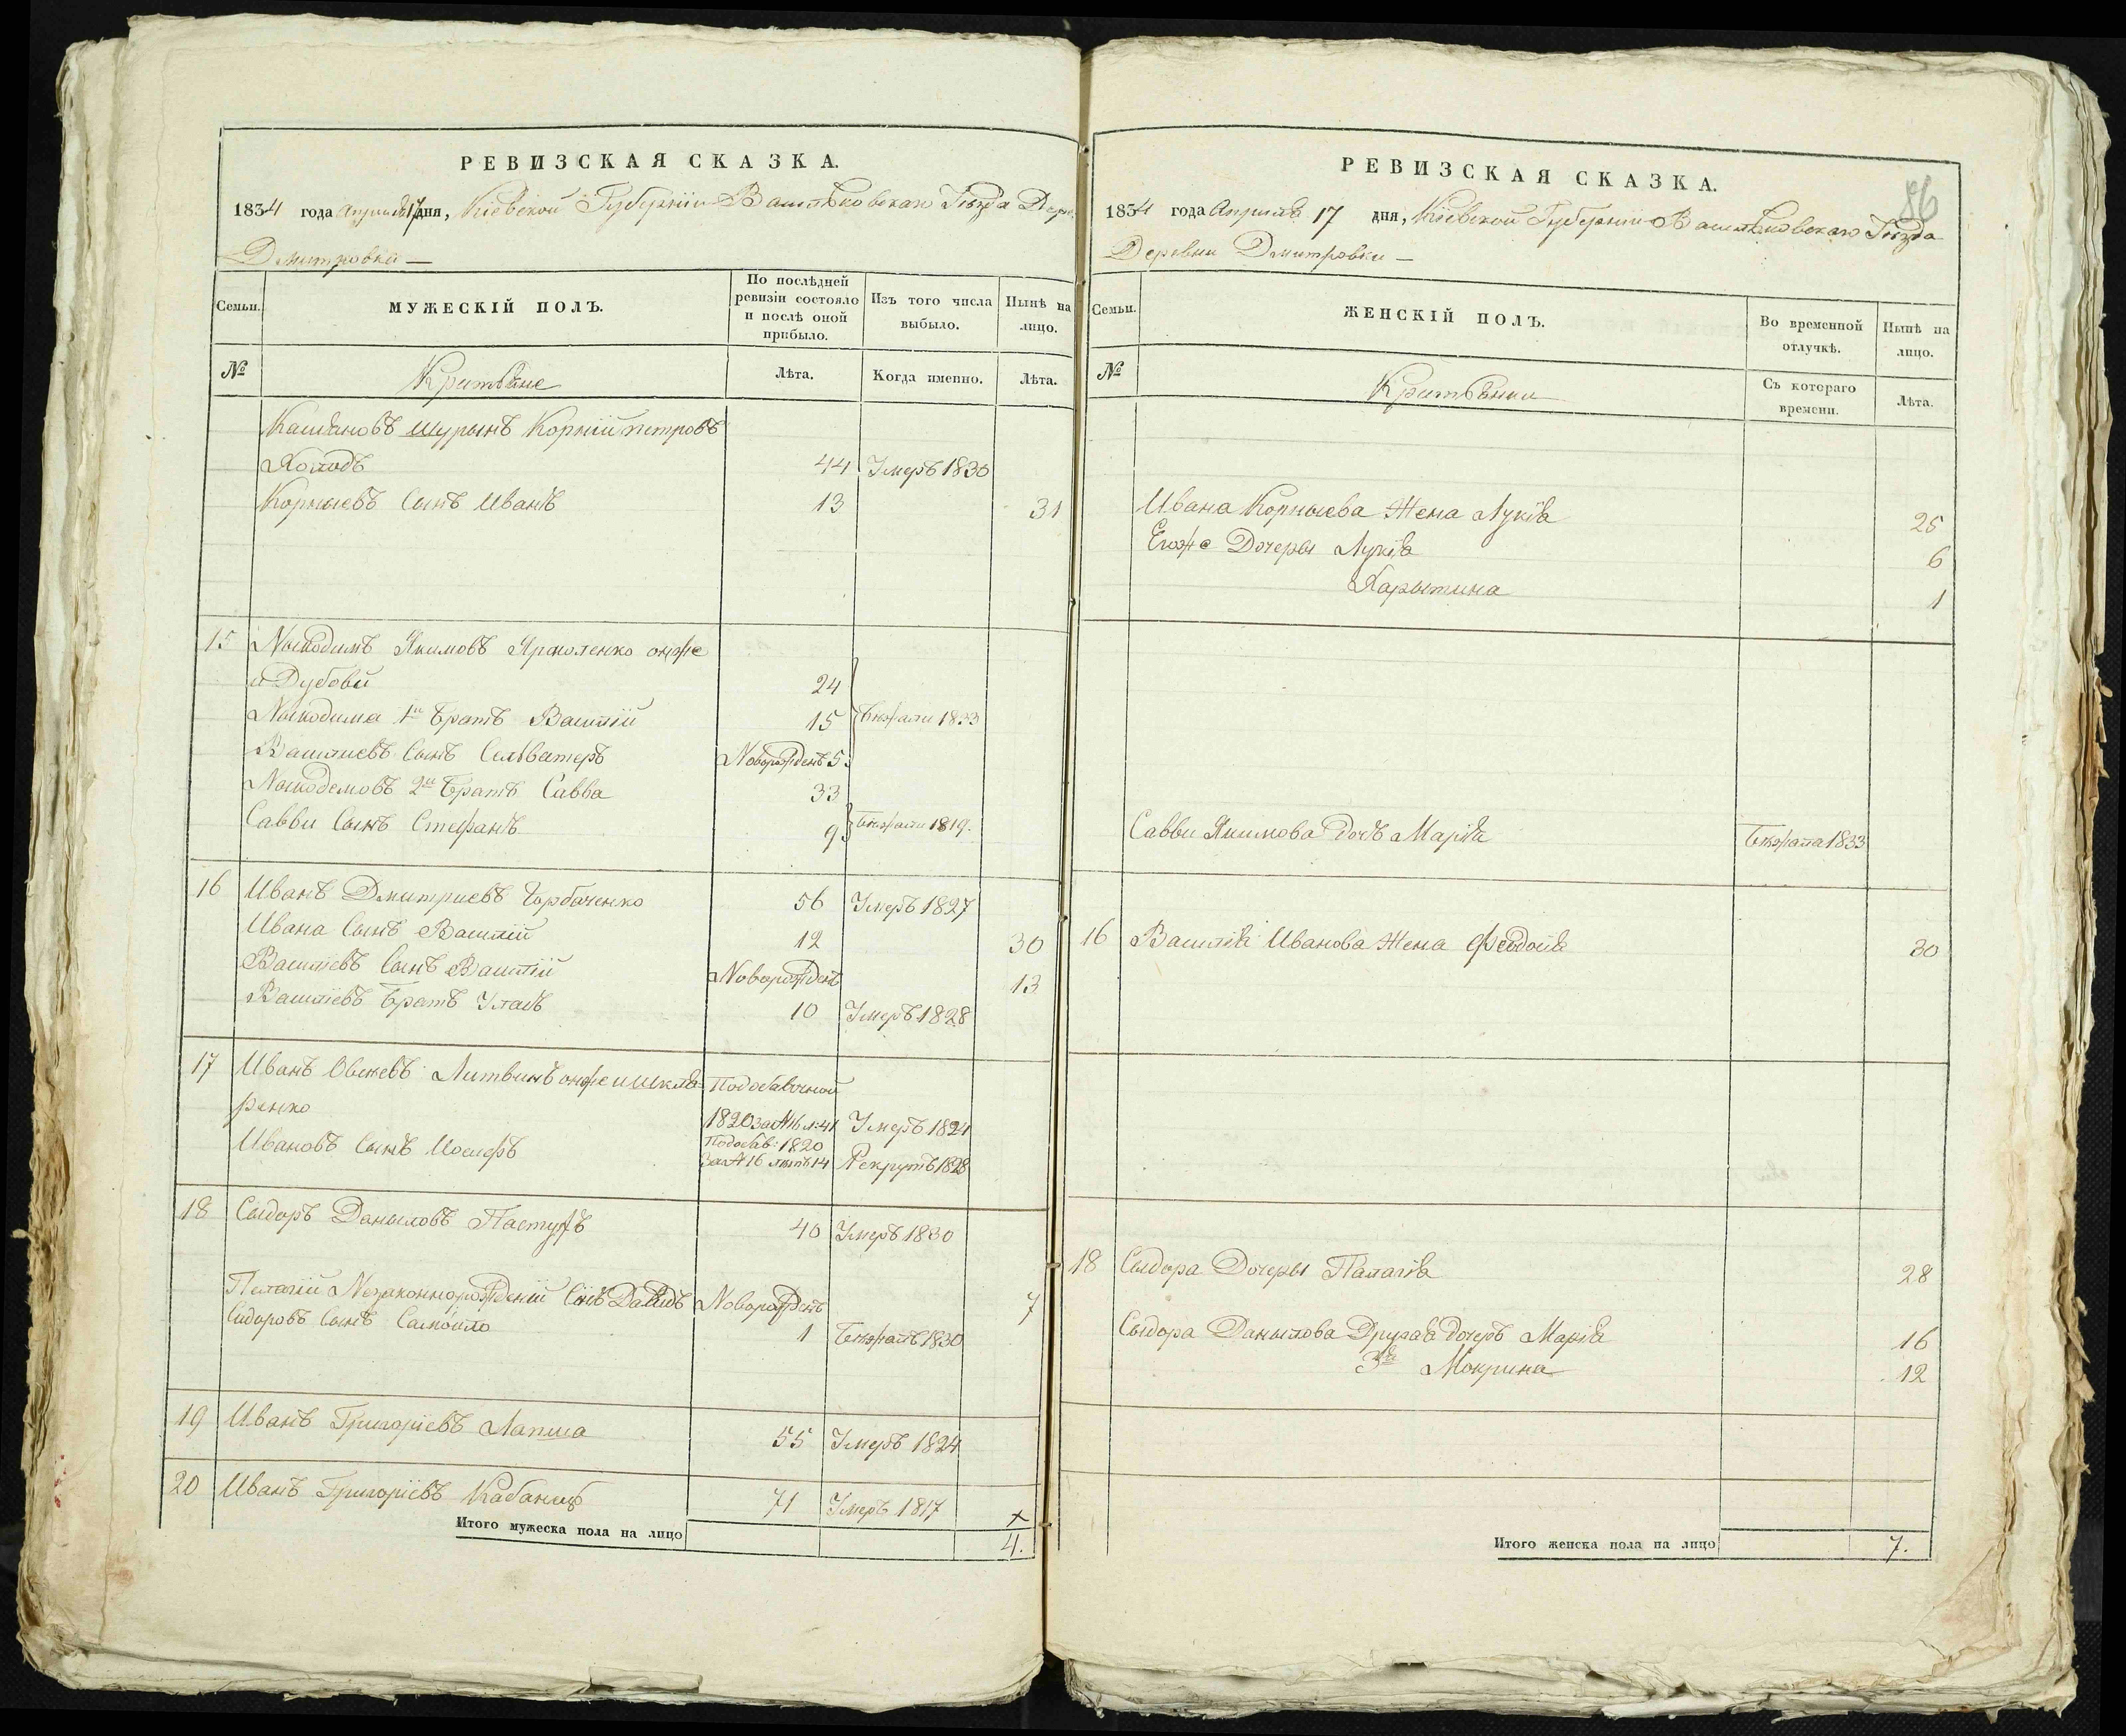 РЕВИЗСКАЯ СКАЗКА.
1834 года Апреля 17 дня, Кіевской Губерніи Васильковскаго Уѣзда Дерев:
Дмитровки —
Семьи.
МУЖЕСКІЙ ПОЛЪ.
По послѣдней ревизіи состояло и послѣ оной прибыло.
Изъ того числа выбыло.
Нынѣ на лицо.
№
Крестьяне
Лѣта.
Когда именно.
Лѣта.
шурынъ Корній Петровъ
Холодъ 44 Умеръ 1830
Корныевъ Сынъ Иванъ 13 31
15 Ныкодимъ Якимовъ Ярмоленко онже
и Дубовій 24
Ныкодима 1й братъ Василій 15 Бежали 1833
Василиевъ Сынъ Селиватеръ Новорожденъ 5
Ныкодемовъ 2й братъ Савва 33
Савви Сынъ Стефанъ 9 Бежали 1819.
16 Иванъ Дмитриевъ Горбаченко 56 Умеръ 1827
Ивана Сынъ Василій 12 30
Василіевъ Сынъ Василій Новорожденъ 13
Василіевъ братъ Уласъ 10 Умеръ 1828
17 Иванъ Овсіевъ Литвинъ онже и Шкля
ренко Подобавочной
1820 за №16 л: 41 Умеръ 1821
Ивановъ Сынъ Иосифъ Подобав: 1820
за №16 лѣтъ 14 Рекрутъ 1828
18 Сыдоръ Даныловъ Пастухъ 40 Умеръ 1830
Пелагіи Незаконнорожденій Сынъ Давидъ Новорожденъ 7
Сидоровъ Сынъ Самойло 1 Бежалъ 1830
19 Иванъ Григоріевъ Лапша 55 Умеръ 1824
20 Иванъ Григоріевъ Кабанецъ 71 Умеръ 1817 х
Итого мужеска пола на лицо 4.
86
РЕВИЗСКАЯ СКАЗКА.
1834 года Апреля 17 дня, Кіевской Губерніи Васильковскаго Уѣзда
Деревни Дмитровки —
Семьи.
ЖЕНСКІЙ ПОЛЪ.
Во временной отлучкѣ.
Нынѣ на лицо.
№
Крестьянки
Съ котораго времени.
Лѣта.
Ивана Корныева Жена Лукія 25
Егоже Дочеры Лукія 6
Харытина 1
Савви Якимова дочь Марія Бежала 1833
16 Василія Иванова Жена Феодосія 30
18 Сыдора Дочеры Палагія 28
Сыдора Данылова Другая дочеръ Марія 16
3я Мокрина 12
Итого женска пола на лицо 7.